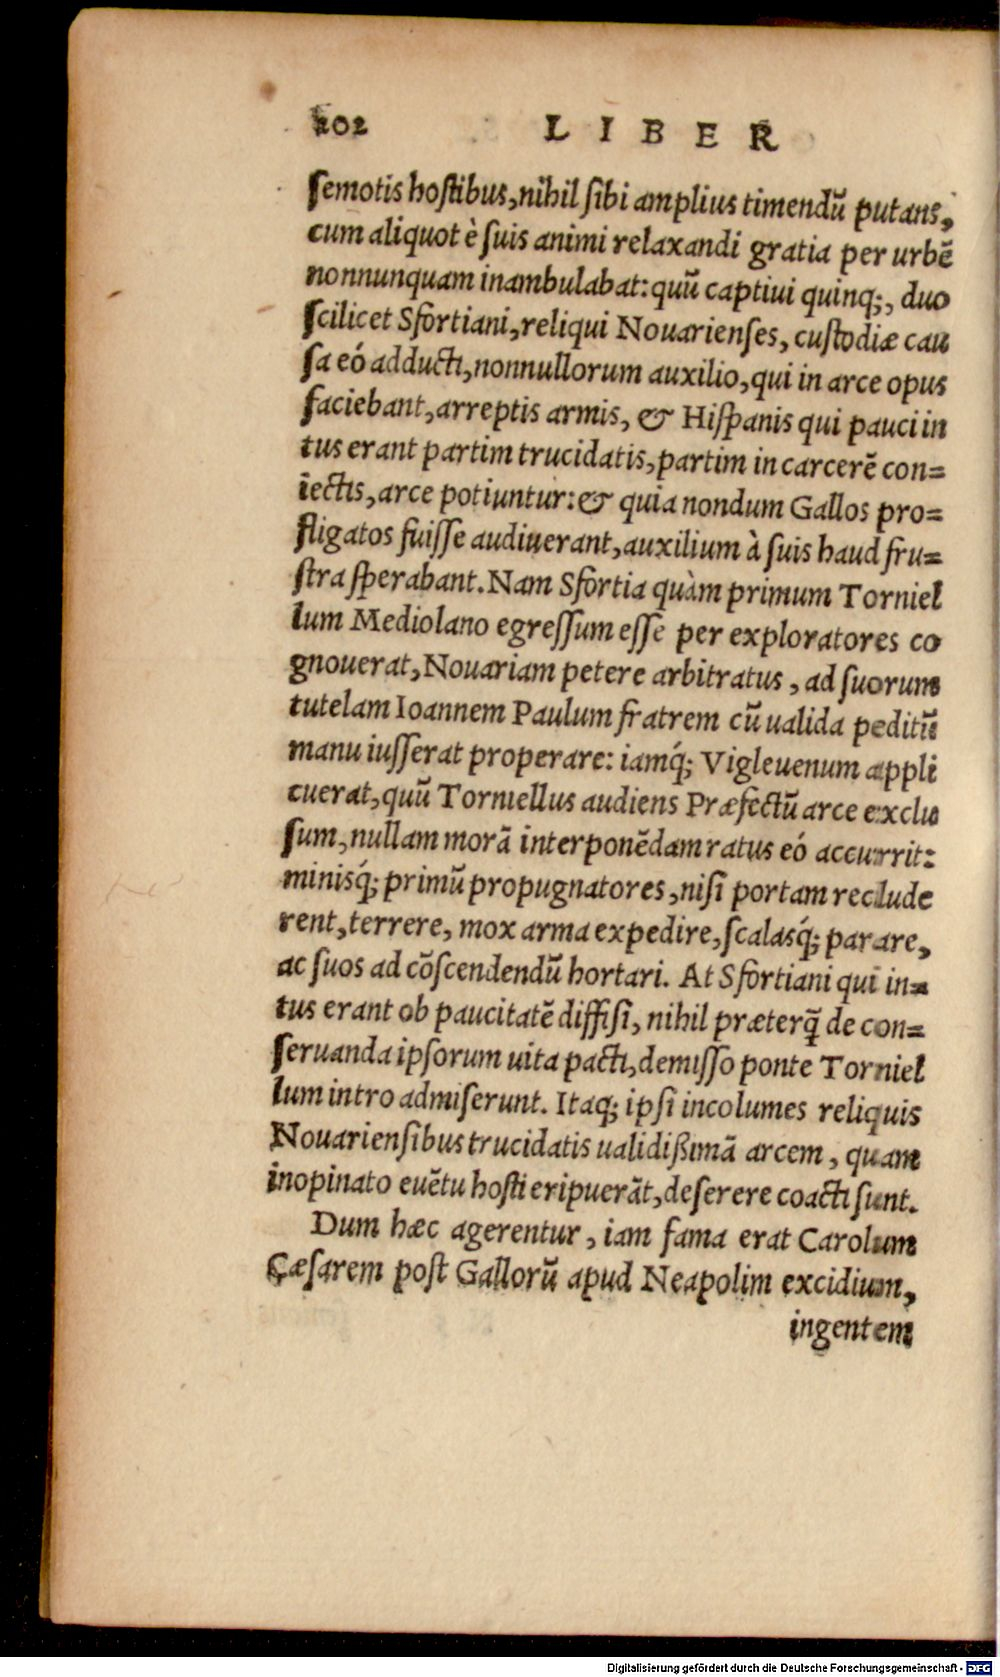 202 LIBER
ſemotis hoſtibus, nihil ſibi amplius timendũ putans,
cum aliquot è ſuis animi relaxandi gratia per urbẽ
nonnunquam inambulabat: quũ captiui quinq;, duo
ſcilicet Sfortiani, reliqui Nouarienſes, cuſtodiæ cau
ſa eó adducti, nonnullorum auxilio, qui in arce opus
faciebant, arreptis armis, & Hiſpanis qui pauci in
tus erant partim trucidatis, partim in carcerẽ con=
iectis, arce potiuntur: & quia nondum Gallos pro=
fligatos fuiſſe audiuerant, auxilium à ſuis haud fru=
ſtra ſperabant. Nam Sfortia quàm primum Torniel
lum Mediolano egreſſum eſſe per exploratores co
gnouerat, Nouariam petere arbitratus, ad ſuorum
tutelam Ioannem Paulum fratrem cũ ualida peditũ
manu iuſſerat properare: iamq́; Vigleuenum appli
cuerat, quũ Torniellus audiens Præfectũ arce exclu
ſum, nullam morã interponẽdam ratus eó accurrit:
minisq́; primũ propugnatores, niſi portam reclude
rent, terrere, mox arma expedire, ſcalasq́; parare,
ac ſuos ad cõſcendendũ hortari. At Sfortiani qui in=
tus erant ob paucitatẽ diffiſi, nihil præterq̃ de con=
ſeruanda ipſorum uita pacti, demiſſo ponte Torniel
lum intro admiſerunt. Itaq; ipſi incolumes reliquis
Nouarienſibus trucidatis ualidißimã arcem, quam
inopinato euẽtu hoſti eripuerãt, deſerere coacti ſunt.
Dum hæc agerentur, iam fama erat Carolum
Cæſarem poſt Gallorũ apud Neapolim excidium,
ingentem
Digitalisierung gefördert durch die Deutsche Forschungsgemeinschaft - DFG